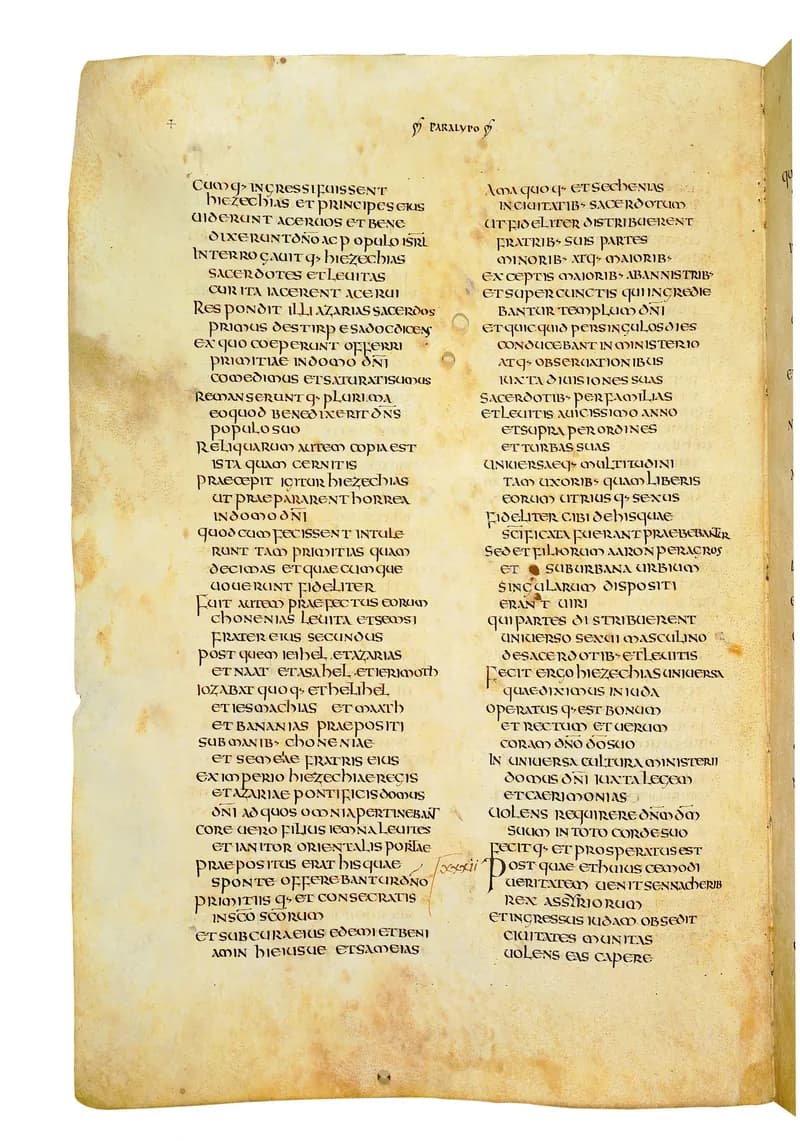 PARALYPO
CUMQ· INGRESSI FUISSENT
HIEZECHIAS ET PRINCIPES EIUS
UIDERUNT ACERUOS ET BENE
DIXERUNT DÑO AC POPULO ISRL
INTERROGAUITQ· HIEZECHIAS
SACERDOTES ET LEUITAS
CUR ITA IACERENT ACERUI
RESPONDIT ILLI AZARIAS SACERDOS
PRIMUS DE STIRPE SADOC DICENS
EX QUO COEPERUNT OFFERRI
PRIMITIAE IN DOMO DÑI
COMEDIMUS ET SATURATI SUMUS
REMANSERUNTQ· PLURIMA
EO QUOD BENEDIXERIT DÑS
POPULO SUO
RELIQUARUM AUTEM COPIA EST
ISTA QUAM CERNITIS
PRAECEPIT IGITUR HIEZECHIAS
UT PRAEPARARENT HORREA
IN DOMO DÑI
QUOD CUM FECISSENT INTULE
RUNT TAM PRIMITIAS QUAM
DECIMAS ET QUAECUMQUE
UOUERUNT FIDELITER
FUIT AUTEM PRAEFECTUS EORUM
CHONENIAS LEUITA ET SEMSI
FRATER EIUS SECUNDUS
POST QUEM IEIHEL ET AZARIAS
ET NAAT ET ASAHEL ET IERIMOTH
IOZABAT QUOQ· ET HELIHEL
ET IESMACHIAS ET MAATH
ET BANANIAS PRAEPOSITI
SUB MANIB· CHONENIAE
ET SEMEAE FRATRIS EIUS
EX IMPERIO HIEZECHIAE REGIS
ET AZARIAE PONTIFICIS DOMUS
DÑI AD QUOS OMNIA PERTINEBANT
CORE UERO FILIUS IEMNA LEUITES
ET IANITOR ORIENTALIS PORTAE
PRAEPOSITUS ERAT HIS QUAE
SPONTE OFFEREBANTUR DÑO
PRIMITIISQ· ET CONSECRATIS
IN SCO SCORUM
ET SUB CURA EIUS EDEM ET BENI
AMIN HIESUE ET SAMEIAS
AMA QUOQ· ET SECHENIAS
IN CIUITATIB· SACERDOTUM
UT FIDELITER DISTRIBUERENT
FRATRIB· SUIS PARTES
MINORIB· ATQ· MAIORIB·
EXCEPTIS MAIORIB· AB ANNIS TRIB·
ET SUPER CUNCTIS QUI INGREDIE
BANTUR TEMPLUM DÑI
ET QUICQUID PER SINGULOS DIES
CONDUCEBANT IN MINISTERIO
ATQ· OBSERUATIONIBUS
IUXTA DIUISIONES SUAS
SACERDOTIB· PER FAMILIAS
ET LEUITIS A UICISSIMO ANNO
ET SUPRA PER ORDINES
ET TURBAS SUAS
UNIUERSAEQ· MULTITUDINI
TAM UXORIB· QUAM LIBERIS
EORUM UTRIUSQ· SEXUS
FIDELITER CIBI DE HIS QUAE
SCIFICATA FUERANT PRAEBEBANTUR
SED ET FILIORUM AARON PER AGROS
ET SUBURBANA URBIUM
SINGULARUM DISPOSITI
ERANT UIRI
QUI PARTES DISTRIBUERENT
UNIUERSO SEXUI MASCULINO
DE SACERDOTIB· ET LEUITIS
FECIT ERGO HIEZECHIAS UNIUERSA
QUAE DIXIMUS IN IUDA
OPERATUSQ· EST BONUM
ET RECTUM ET UERUM
CORAM DÑO DO SUO
IN UNIUERSA CULTURA MINISTERII
DOMUS DÑI IUXTA LEGEM
ET CAERIMONIAS
UOLENS REQUIRERE DÑM DM
SUUM IN TOTO CORDE SUO
FECITQ· ET PROSPERATUS EST
xxxii POST QUAE ET HUIUSCEMODI
UERITATEM UENIT SENNACHERIB
REX ASSYRIORUM
ET INGRESSUS IUDAM OBSEDIT
CIUITATES MUNITAS
UOLENS EAS CAPERE